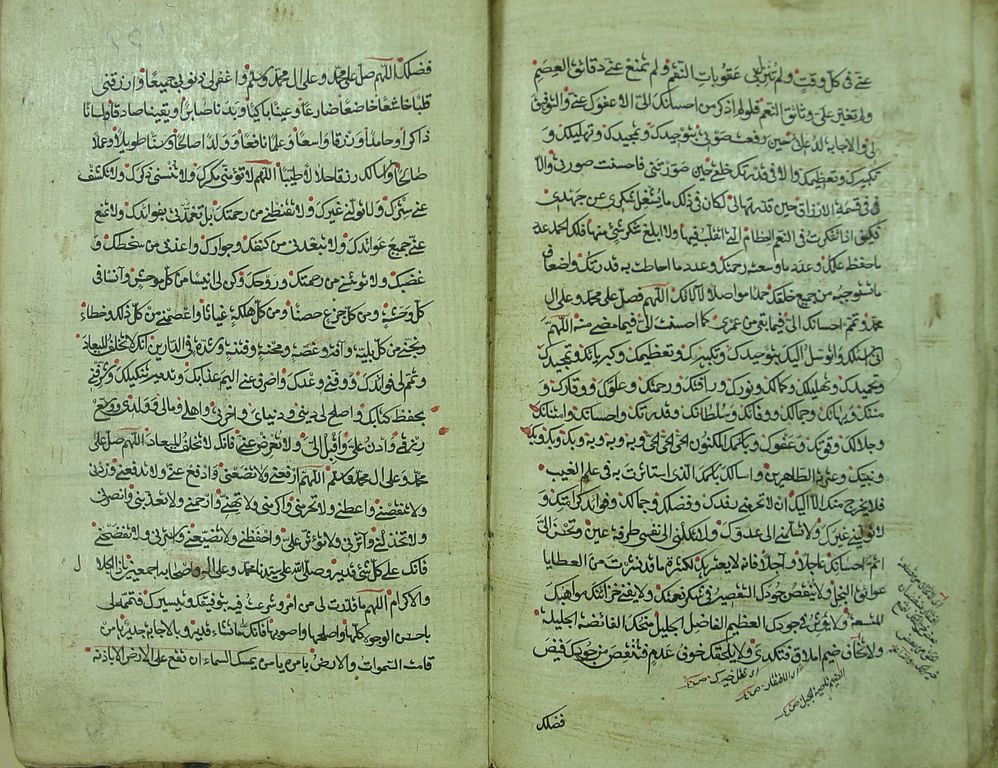 عني في كل وقت ولم تنزل بي عقوبات النقم ولم تمنع عني دقائق العصم
ولم تغير علي وثائق النعم فلو لم اذكر من احسانك الي الا عفوك عني والتوفيق
لي والاجابة لدعائي حين رفعت صوتي بتوحيدك وتمجيدك وتهليلك و
تكبيرك وتعظيمك والا في قدرتك خلقي حين صورتني فاحسنت صورتي والا
في قسمة الارزاق حين قدرتها لي لكان في ذلك ما يشغل شكري عن جهدي
فكيف اذا فكرت في النعم العظام التي اتقلب فيها ولا ابلغ شكر شئ منها فلك الحمد عدد
ما حفظه علمك وعدد ما وسعته رحمتك وعدد ما احاطت به قدرتك واضعاف
ما تستوجبه من جميع خلقك حمدا مواصلا لآلائك اللهم فصل على محمد وعلى ال
محمد وتمم احسانك الي فيما بقي من عمري كما احسنت الي فيما مضى منه اللهم
اني اسئلك واتوسل اليك بتوحيدك وتكبيرك وتعظيمك وكبريائك وتمجيدك
وتحميدك وتهليلك وكمالك ونورك ورافتك ورحمتك وعلوك ووقارك و
منك وبهائك وجمالك ووفائك وسلطانك وقدرتك واحسانك وامتنانك
وجلالك وقوتك وعفوك وباسمك المكنون الحي الحي الحي وبه وبه وبه وبك وبك وبك
ونبيك وعترته الطاهرين واسالك باسمك الذي استاثرت به في علم الغيب
فلا يخرج منك الا اليك ان لا تحرمني رفدك وفضلك وجمالك وفوائد كرامتك و
لا تولني غيرك ولا تسلمني الى عدوك ولا تكلني الى نفسي طرفة عين وتحسن الي
اتم احسانك عاجلا واجلا فانه لا يعتريك لكثرة ما قد نشرت من العطايا
عوائق البخل ولا ينقص جودك التقصير في شكر نعمتك ولا يفني خزائنك مواهبك
المتسعة ولا يؤثر في جودك العظيم الفاضل الجليل منحك الفائضة الجليلة
ولا تخاف ضيم املاق فتكدي ولا يلحقك خوف عدم فتنقص من جودك فيض
فضلك
فضلك اللهم صل على محمد وعلى ال محمد وسلم واغفر لي ذنوبي جميعا وارزقني
قلبا خاشعا خاضعا ضارعا وعينا باكيا وبدنا صابرا ويقينا صادقا ولسانا
ذاكرا وحامدا ورزقا واسعا وعلما نافعا وولدا صالحا وسنا طويلا وعملا
صالحا واسالك رزقا حلالا طيبا اللهم لا تؤمني مكرك ولا تنسني ذكرك ولا تكشف
عني سترك ولا تولني غيرك ولا تقنطني من رحمتك بل تغمدني بفوائدك ولا تمنع
عني جميع عوائدك ولا تبعدني من كنفك وجوارك واعذني من سخطك و
غضبك ولا تؤيسني من رحمتك وروحك وكن لي انيسا من كل موحش وآنسا في
كل وحشة ومن كل جزع حصنا ومن كل هلكة غياثا واعصمني من كل ذلك وخطاء
ونجني من كل بلية وآفة وغصة ومحنة وفتنة وشدة في الدارين انك لا تخلف الميعاد
وتمم لي فوائدك ووقني وعدك واصرف عني اليم عذابك وتدمير تنكيلك وشرفني
بحفظ كتابك واصلح لي ديني ودنياي واخرتي واهلي ومالي وولدي ووسع
رزقي وادره علي واقبل الي ولا تعرض عني فانك لا تخلف الميعاد اللهم صل على
محمد وعلى ال محمد وسلم اللهم ارفعني ولا تضعني وادفع عني ولا تدفعني وزدني
ولا تنقصني واعطني ولا تحرمني واكرمني ولا تهني وارحمني ولا تعذبني وانصرني
ولا تخذلني واثرني ولا تؤثر علي واحفظني ولا تضيعني واسترني ولا تفضحني
فانك على كل شئ قدير وصلى الله على سيدنا محمد وعلى اله واصحابه اجمعين يا ذا الجلال
والاكرام اللهم ما قدرت لي من امر وشرعت فيه بتوفيقك وتيسيرك فتممه لي
باحسن الوجوه كلها واصلحها واصوبها فانك على ما تشاء قدير وبالاجابة جدير يا من
قامت السموات والارض بامره يا من يمسك السماء ان تقع على الارض الا باذنه